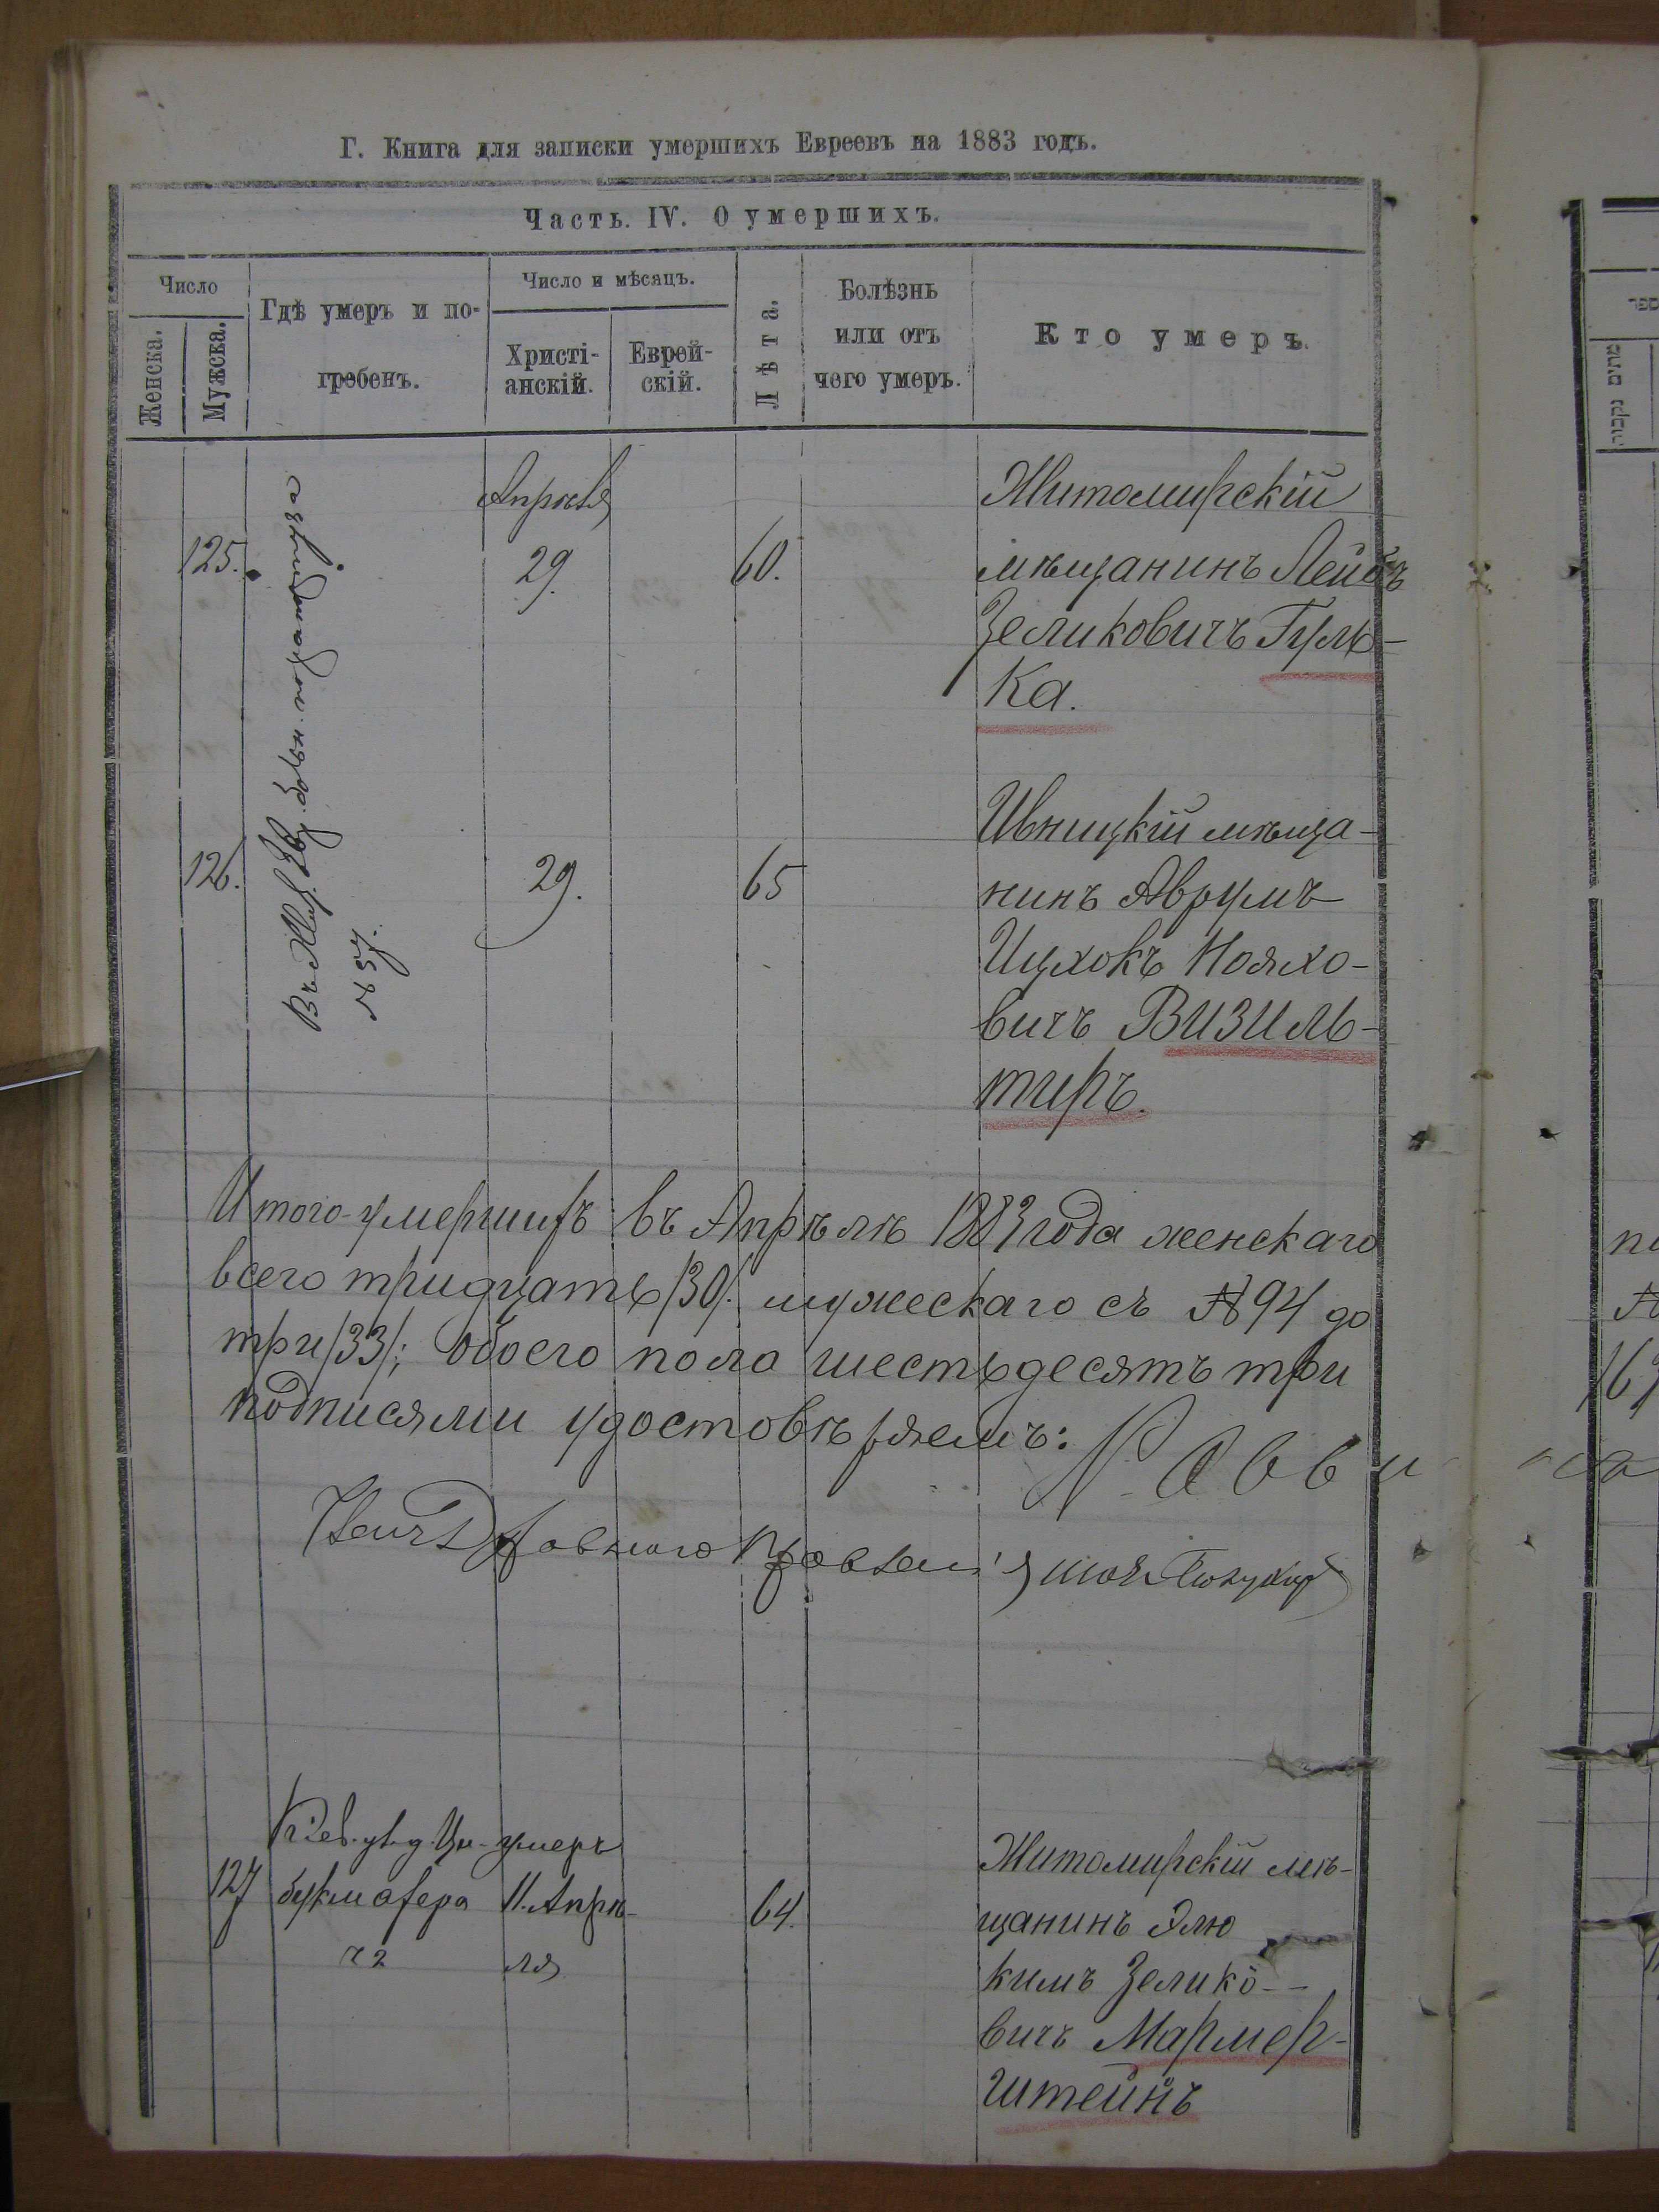 Г. Книга для записки умершихъ Евреевъ на 1883 годъ.
Часть. IV. О умершихъ.
Число
Женска.
Мужска.
Гдѣ умеръ и по-
гребенъ.
Число и мѣсяцъ.
Христі-
анскій.
Еврей-
скій.
Лѣта.
Болѣзнь
или отъ
чего умеръ.
Кто умеръ.
Апрѣля
125.
29.
60.
Житомирскій
мѣщанинъ Лейбъ
Зеликовичъ Гуль-
ка.
126.
29.
65
Ивницкій мѣща-
нинъ Аврумъ
Ицхокъ Нояхо-
вичъ Визиль-
тиръ.
№ 57.
Итого умершихъ въ Апрѣлѣ 1883 года женскаго
всего тридцать /30/. мужескаго съ № 94 до
три /33/; обоего пола шестьдесятъ три
подписями удостовѣряемъ:
Равви
127
Кіев. уѣ. д. умеръ
11. Апрѣ-
ля
64.
Житомирскій мѣ-
щанинъ Элю
кимъ Зелико-
вичъ Мармер-
штейнъ
מתים נקבות